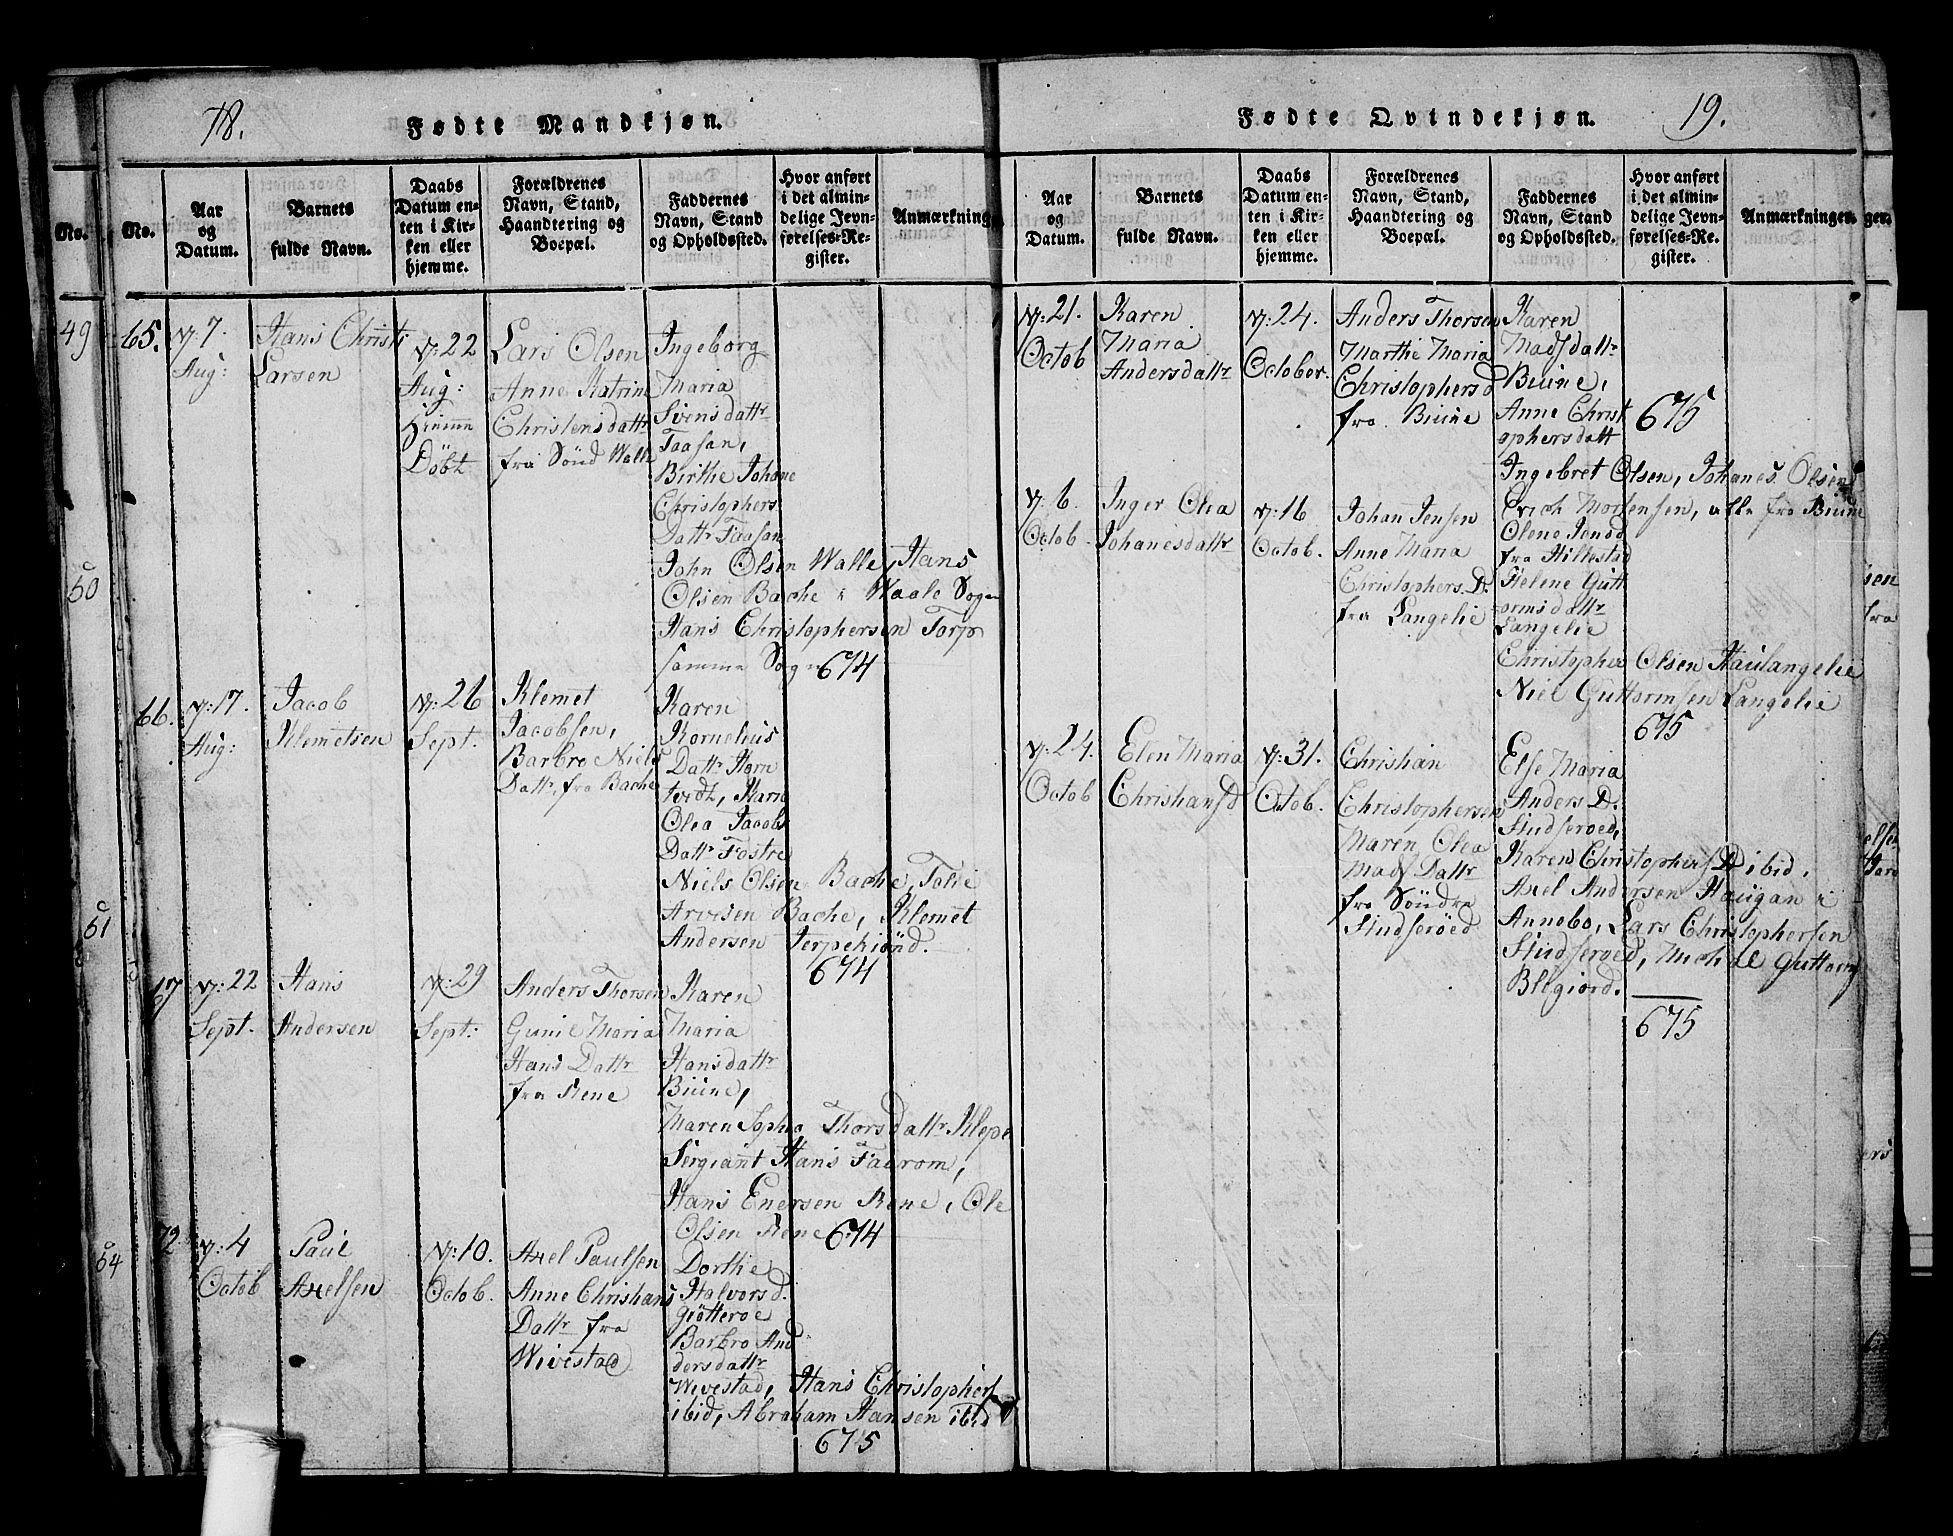 78.
Fødte Mandkjøn.
No.
No.
Aar
og
Datum.
Barnets
fulde Navn.
Daabs
Datum en-
ten i Kir-
ken eller
hjemme.
Forældrenes
Navn, Stand,
Haandtering og
Boepæl.
Faddernes
Navn, Stand
og Opholdssted.
Hvor anført
i det almin-
delige Jevn-
førelses-Re-
gister.
Anmærkning
49
50
51
54
65.
7.
Aug:
Hans Christ
Larsen
22
Aug:
Döbt
Lars Olsen
Anne Katrine
Christensdattr
fra Sönd Walle
Ingeborg
Maria
Svensdattr
Taasan,
Birthe Johane
Christophers
Dattr Taasan
John Olsen Walle, Hans
Olsen Bache i Waale Sogn
Hans Christophersen Torp
samme Sogn 674
66.
17.
Aug:
Jacob
Klemetsen
26
Sept.
Klemet
Jacobsen,
Barbro Niels
Dattr, fra Bache
Karen
Kornelius
Dattr Horn
tvedt, Karn
Olea Jacobs
Dattr Fostre
Niels Olsen Bache, Tolie
Arvesen Bache, Klemet
Andersen Terpekiönd.
674
67
22
Sept.
Hans
Andersen
29
Sept:
Anders Thorsen
Gunil Maria
Hans Dattr
fra Rene
Karen
Maria
Hansdattr
Biune,
Maren Sophia Thorsdattr Klepe
Sergiant Hans Faarom,
Hans Enersen Rene, Ole
Olsen Rene 674
72
4
Octob
Paul
Axelsen
10.
Octob.
Axel Paulsen
Anne Christians
Dattr fra
Wivestad
Dorthe
Halvorsd.
Giötteroe
Barbro And
dersdattr
Wivestad, Hans Christophers
ibid, Abraham Hansen ibid
675
Fødte Qvindekjøn.
19.
Aar
og
Datum.
Barnets
fulde Navn.
Daabs
Datum en-
ten i Kir-
ken eller
hjemme.
Forældrenes
Navn, Stand,
Haandtering og
Boepæl.
Faddernes
Navn, Stand
og Opholdssted.
Hvor anført
i det almin-
delige Jevn-
førelses-Re-
gister.
Anmærkninger.
21.
Octob
Karen
Maria
Andersdattr
24.
October.
Anders Thorsen
Marthe Maria
Christophersd
fra Biune
Karen
Madsdattr
Biune,
Anne Christ
ophersdatt
Ingebret Olsen, Johanes Olsen
Erich Mortensen, alle fra Biune
675
6.
Octob.
Inger Olea
Johanesdattr
16
Octob.
Johan Jensen
Anne Maria
Christophers D.
fra Langelie
Olene Jensd
fra Hillestad
Helene Gutt
ormsdattr
Langelie
Christopher Olsen Haulangelie
Niel Guttormsen Langelie
675
24.
Octob
Elen Maria
Christiansd
31.
Octob.
Christian
Christophersen
Maren Olea
Mads Dattr
fra Söndre
Studseröed
Else Maria
Anders D.
Studseroed,
Karen Christophers D ibid,
Axel Andersen Haugan i
Annebo, Lars Christophersen
Studseroed, Michel Guttorm
Blegiord.
675